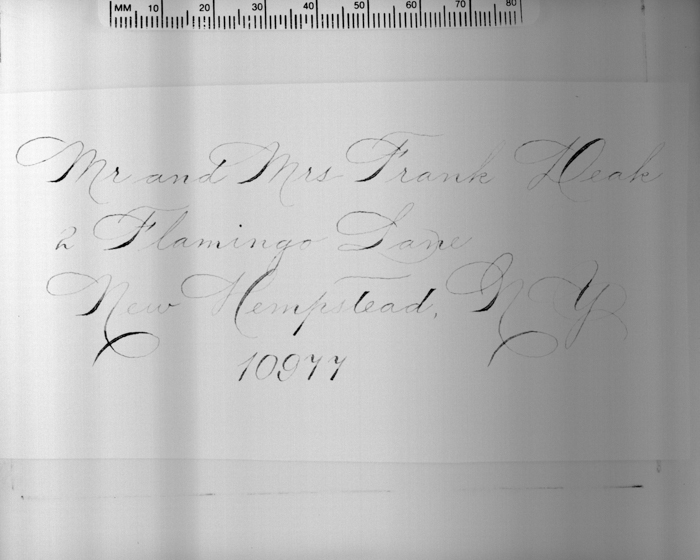 MM 10 20 30 40 50 60 70 80
Mr and Mrs Frank Heak
2 Flamingo Lane
New Hempstead, N Y
10977